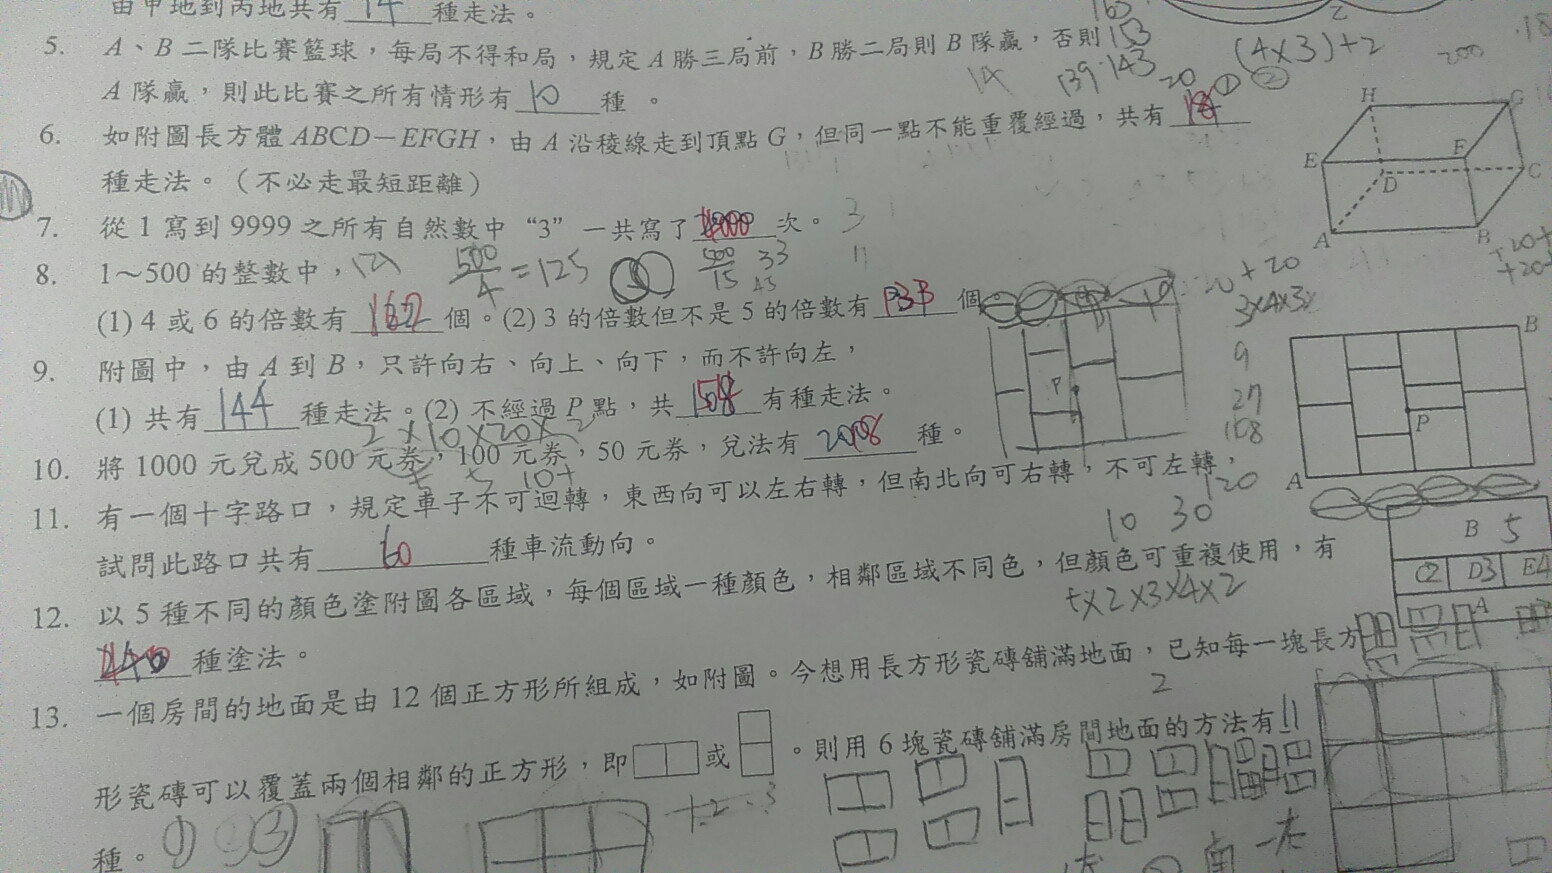 由甲地到丙地共有 14 種走法。
5. A、B 二隊比賽籃球，每局不得和局，規定 A 勝三局前，B 勝二局則 B 隊贏，否則
A 隊贏，則此比賽之所有情形有 10 種 。
163
153
139 143
14
20
(4×3)+2
200
18
① ②
6. 如附圖長方體 ABCD－EFGH，由 A 沿稜線走到頂點 G，但同一點不能重覆經過，共有 18
種走法。（不必走最短距離）
H G
E F
D C
A B
7. 從 1 寫到 9999 之所有自然數中“3”一共寫了 4000 次。
3
8. 1～500 的整數中，
500/4 = 125
500/15 33
(1) 4 或 6 的倍數有 167 個。(2) 3 的倍數但不是 5 的倍數有 133 個。
9. 附圖中，由 A 到 B，只許向右、向上、向下，而不許向左，
(1) 共有 144 種走法。(2) 不經過 P 點，共 108 有種走法。
P
20 + 20
9
27
108
B
P
A
2×10×20×2
10. 將 1000 元兌成 500 元券，100 元券，50 元券，兌法有 種。
11. 有一個十字路口，規定車子不可迴轉，東西向可以左右轉，但南北向可右轉，不可左轉，
試問此路口共有 10 種車流動向。
10 30
120
12. 以 5 種不同的顏色塗附圖各區域，每個區域一種顏色，相鄰區域不同色，但顏色可重複使用，有
種塗法。
5×2×3×4×2
B 5
C2 D3 E4
A
13. 一個房間的地面是由 12 個正方形所組成，如附圖。今想用長方形瓷磚舖滿地面，已知每一塊長方
2
形瓷磚可以覆蓋兩個相鄰的正方形，即 或 。則用 6 塊瓷磚舖滿房間地面的方法有 11
種。
① ② ③